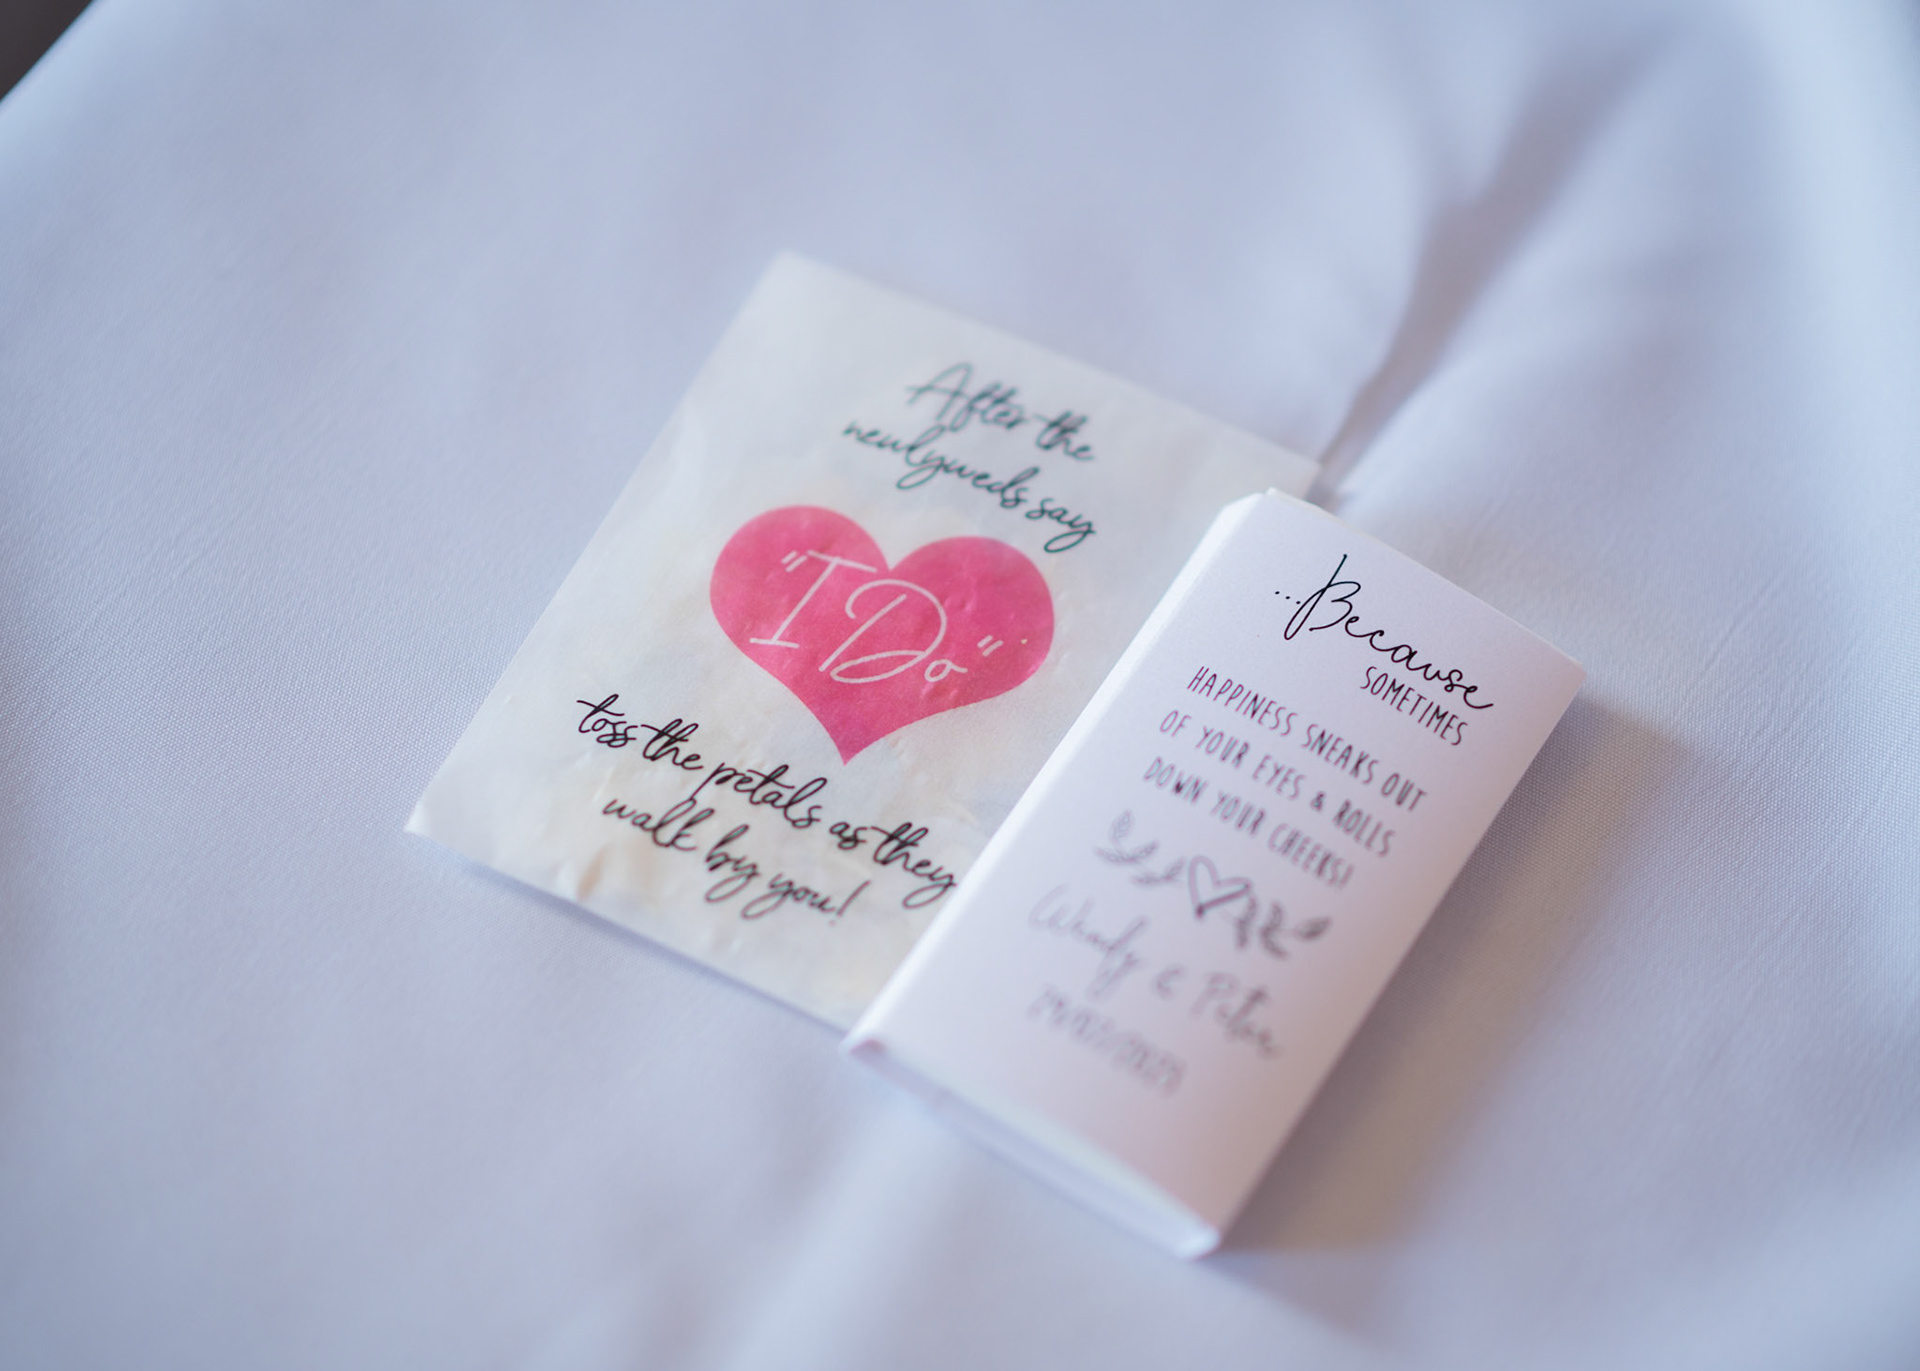 After the
newlyweds say
"I Do"
toss the petals as they
walk by you!
...Because
SOMETIMES
HAPPINESS SNEAKS OUT
OF YOUR EYES & ROLLS
DOWN YOUR CHEEKS!
Wendy & Peter